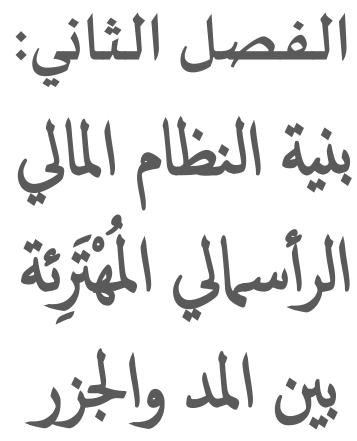 الفصل الثاني:
بنية النظام المالي
الرأسمالي المُهْتَرِئة
بين المد والجزر